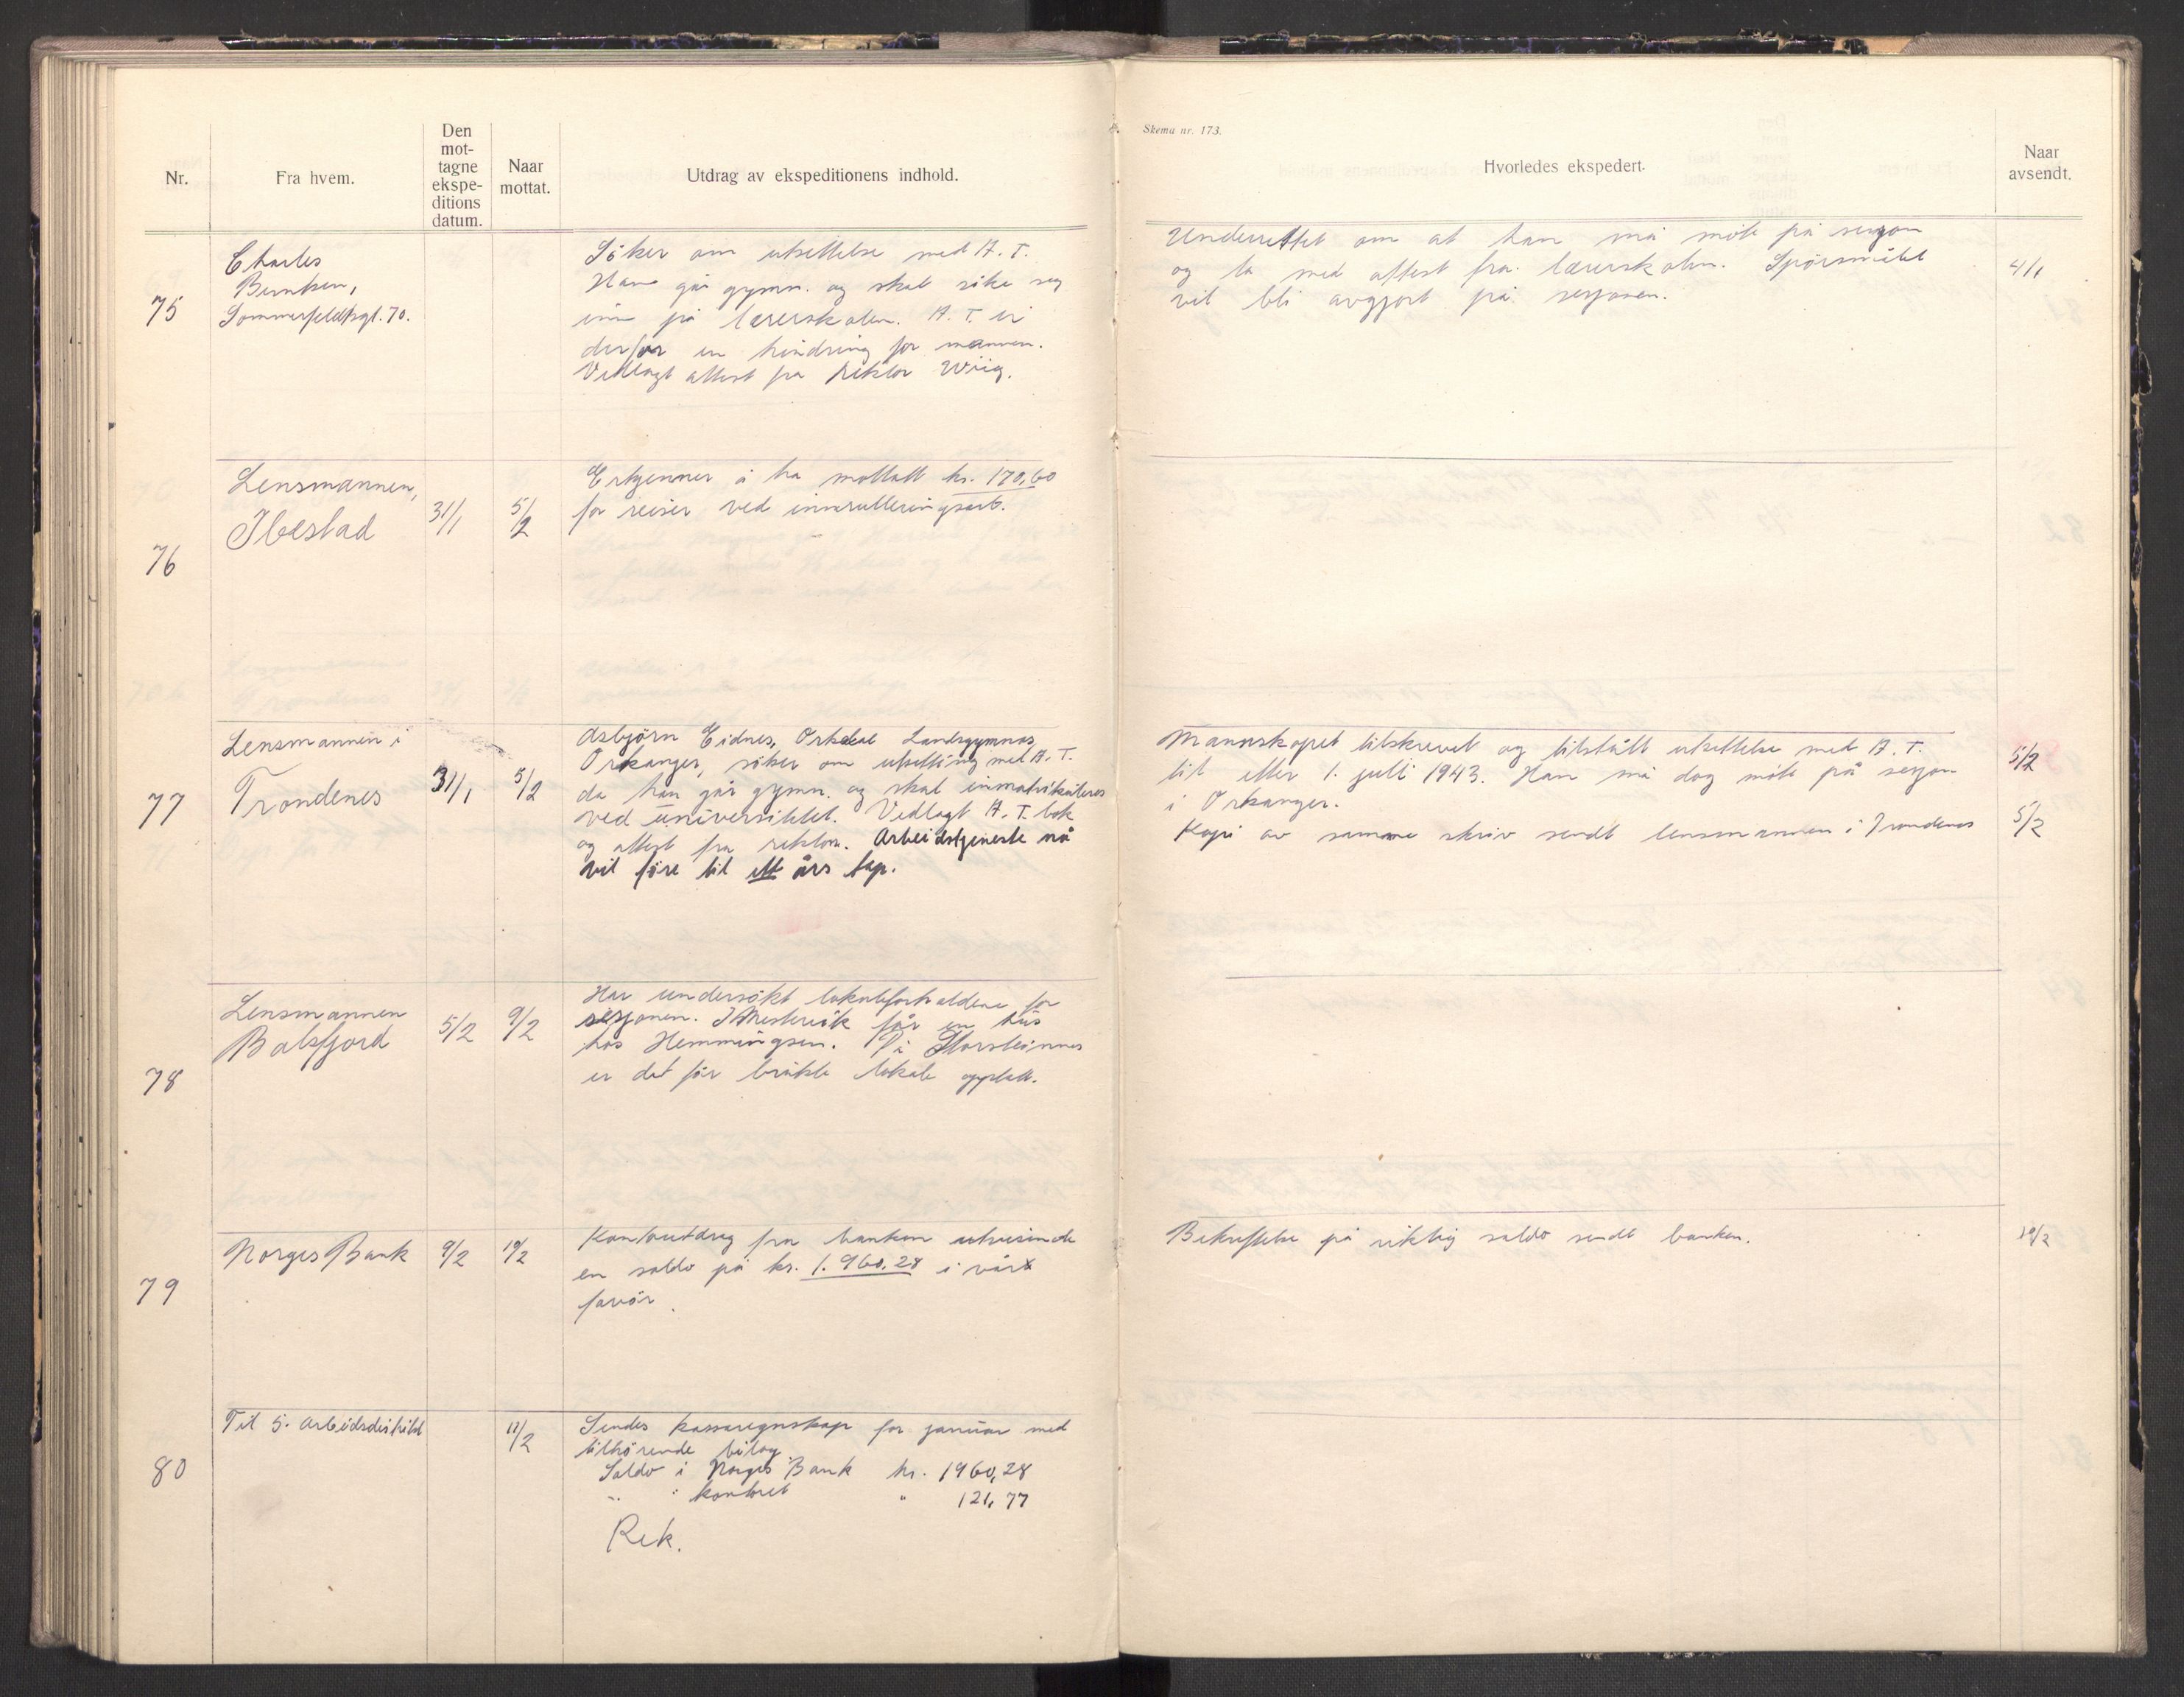 Skema nr. 173.
Nr.
Fra hvem.
Den
mot-
tagne
ekspe-
ditions
datum.
Naar
mottat.
Utdrag av ekspeditionens indhold.
Hvorledes ekspedert.
Naar
avsendt.
75
Charles
Berntsen,
Sommerfeldtsgt. 70.
Söker om utsettelse med A. T.
Han går gymn. og skal söke seg
inn på lærerskolen. A. T. er
derfor en hindring for mannen.
Vedlagt attest fra rektor Wiig.
Underrettet om at han må möte på sesjon
og ta med attest fra lærerskolen. Spörsmålet
vil bli avgjort på sesjonen.
4/1
76
Lensmannen,
Ibestad
31/1
5/2
Erkjenner å ha mottatt kr. 170,60
for reiser ved innrulleringsarb.
77
Lensmannen i
Trondenes
31/1
5/2
Asbjörn Eidnes, Orkdal Landsgymnas
Orkanger, söker om utsetting med A. T.
da han går gymn. og skal inmatrikuleres
ved universitetet. Vedlagt A. T. bok
og attest fra rektor. Arbeidstjeneste nå
vil före til ett års tap.
Mannskapet tilskrevet og tilstått utsettelse med A. T.
til etter 1. juli 1943. Han må dog möte på sesjon
i Orkanger.
Kopi av samme skriv sendt lensmannen i Trondenes
5/2
5/2
78
Lensmannen
Balsfjord
5/2
9/2
Har undersökt lokalforholdene for
sesjonen. I Mestervik får en hus
hos Hemmingsen. På Storsteinnes
er det för brukte lokale opptatt.
79
Norges Bank
9/2
10/2
Kontoutdrag fra banken utvisende
en saldo på kr. 1.960,28 i vår
favör.
Bekreftelse på riktig saldo sendt banken.
10/2
80
Til 5. Arbeidsdistrikt
11/2
Sendes kassaregnskap for januar med
tilhörende bilag
Saldo i Norges Bank kr. 1960,28
" " kontoret " 121,77
Rek.